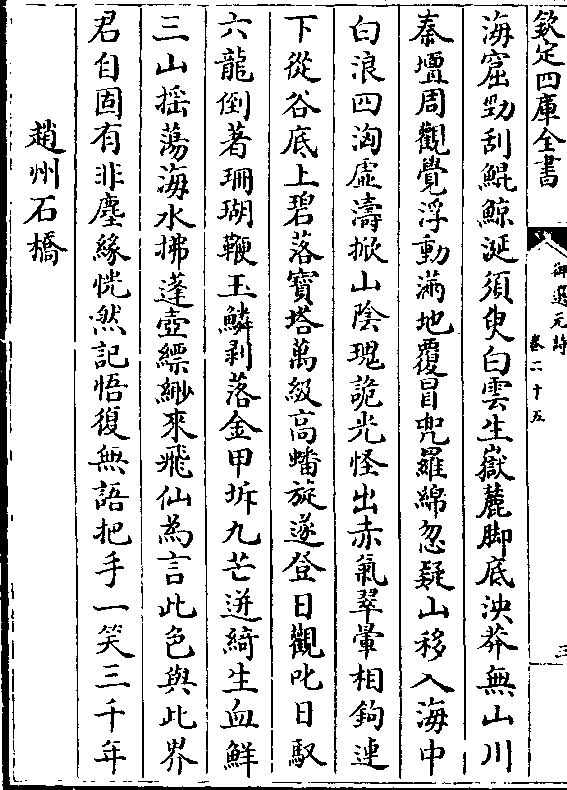 欽定四庫全書
御選元詩
卷二十五
三
海窟勁刮鯤鯨涎須臾白雲生嶽麓脚底泱莽無山川
秦壇周觀覺浮動滿地覆冒兜羅綿忽疑山移入海中
白浪四洶虛濤掀山陰瑰詭光怪出赤氣翠暈相鉤連
下從谷底上碧落寶塔萬級高蟠旋遂登日觀叱日馭
六龍倒著珊瑚鞭玉鱗剥落金甲坼九芒迸綺生血鮮
三山搖蕩海水拂蓬壺縹緲來飛仙為言此色與此界
君自固有非塵緣恍然記悟復無語把手一笑三千年
趙州石橋